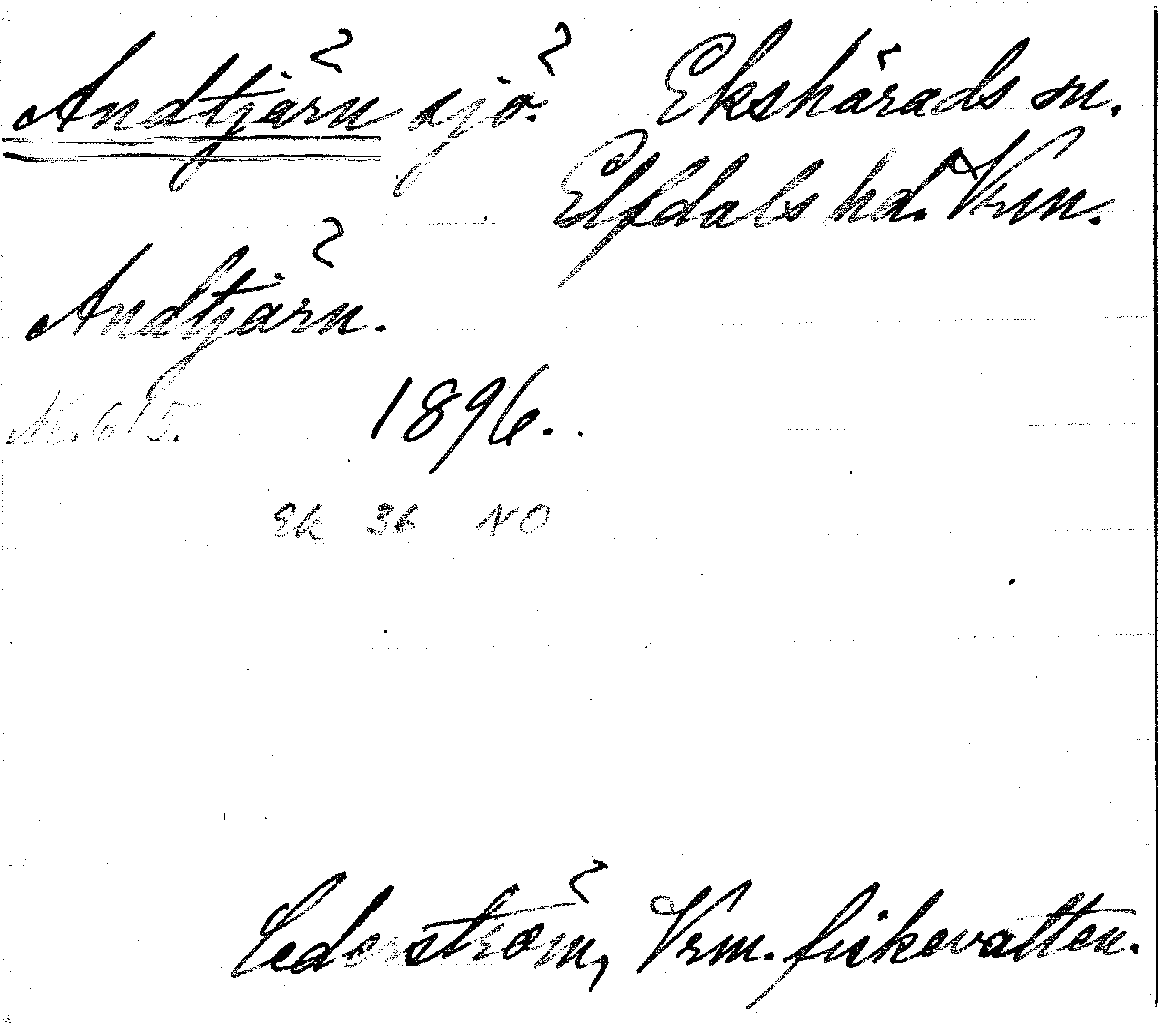 Andtjärn sjö. Ekshärads sn.
Elfdals hd. Vrm.
Andtjärn.
N:r 615. 1896.
Ek 36 NO
Cederström, Vrm. fiskevatten.